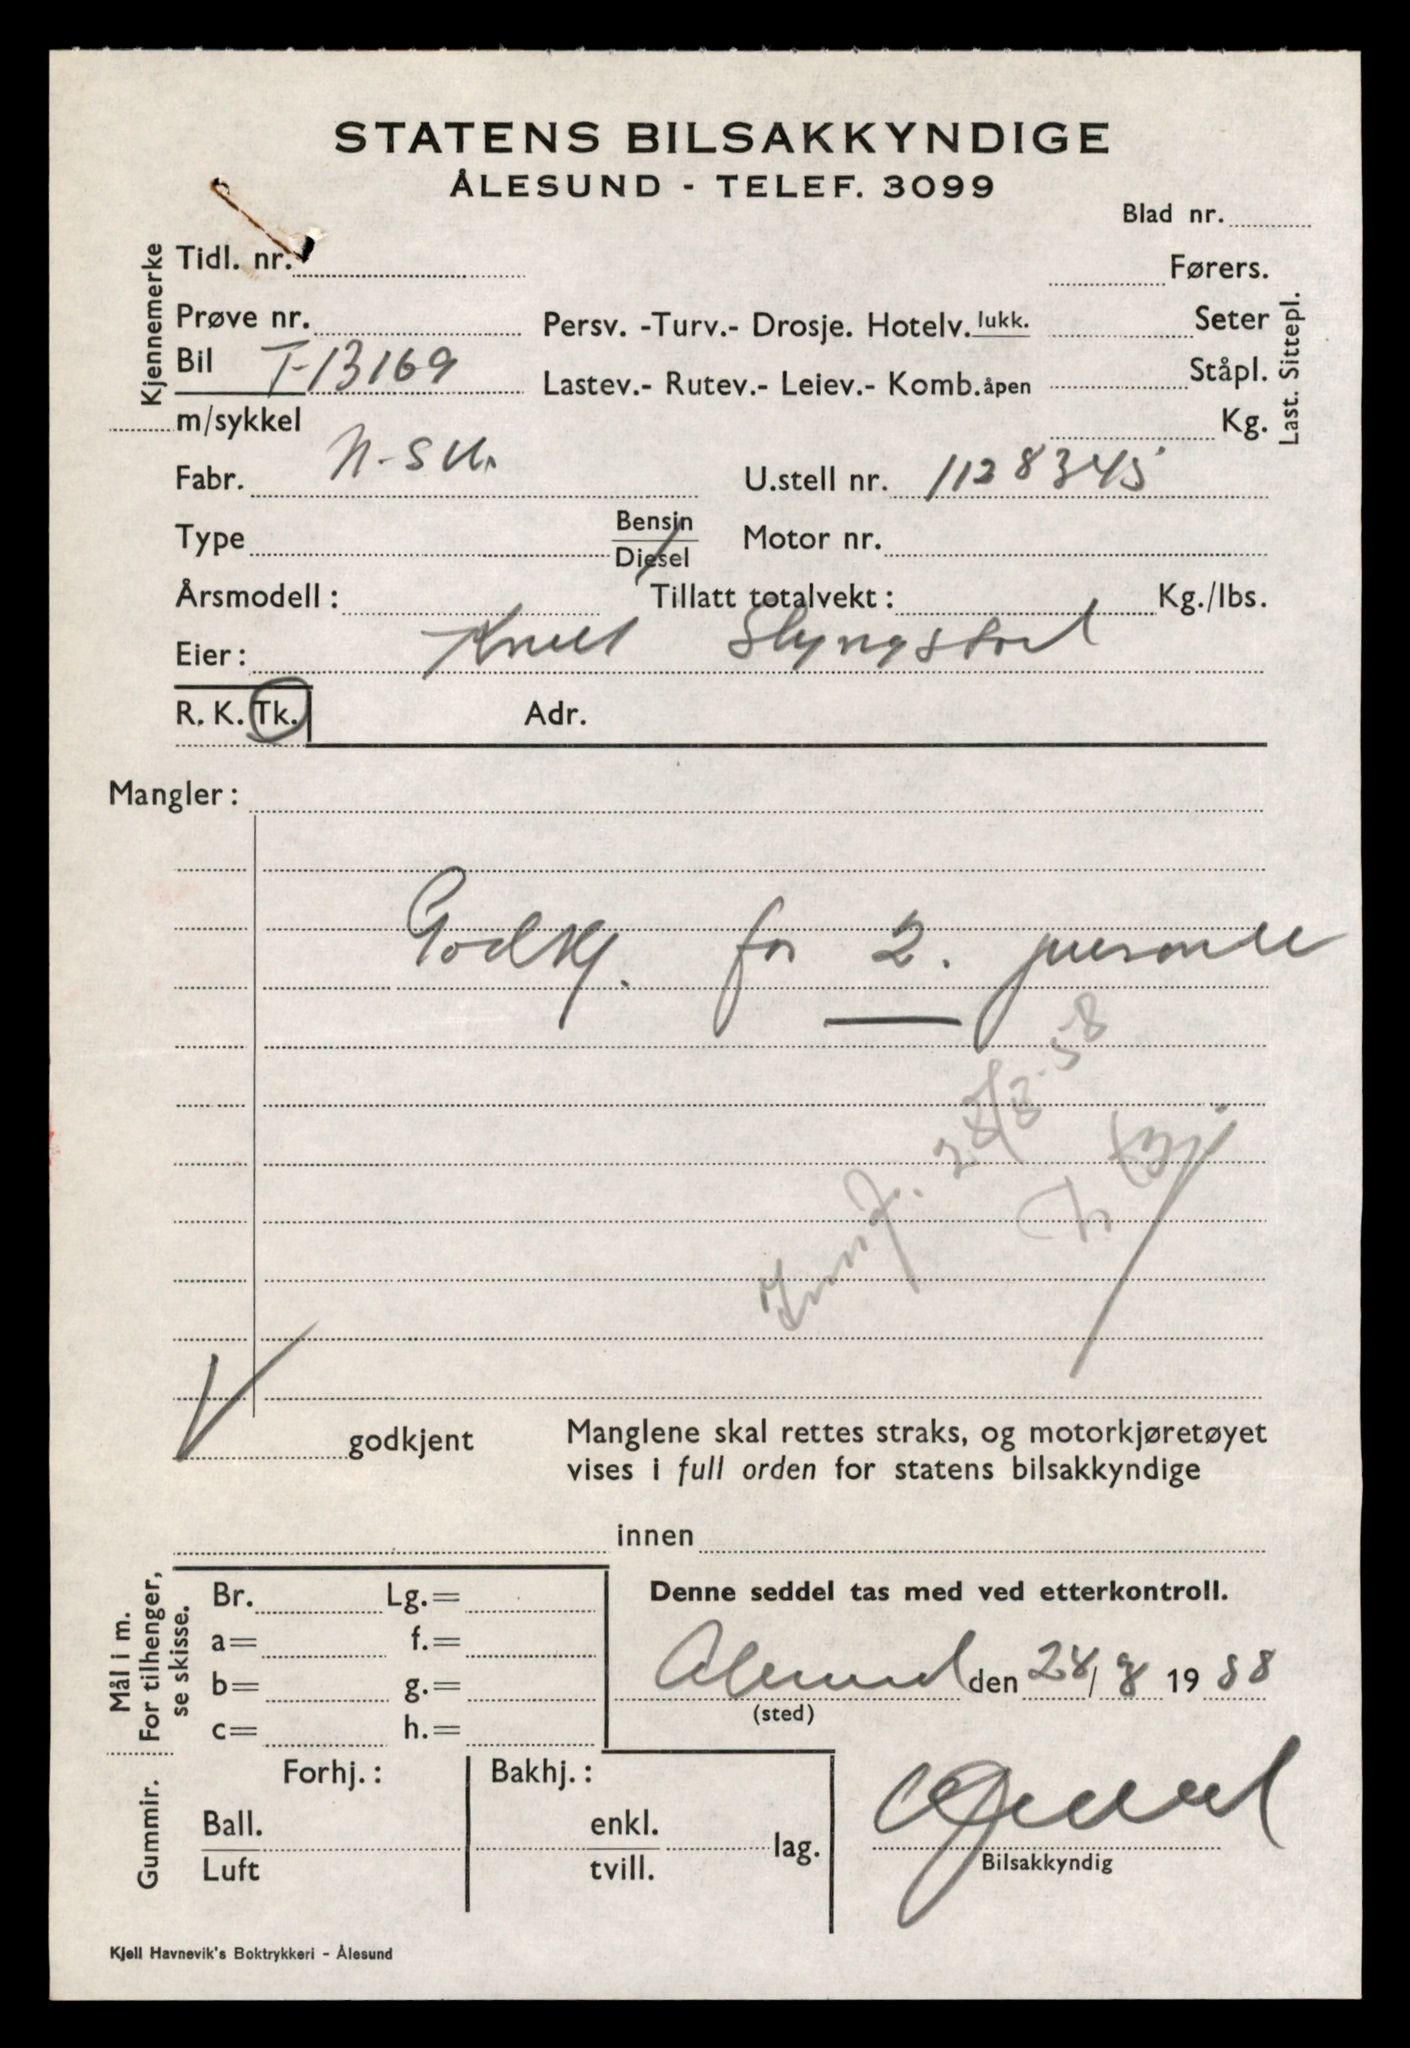 STATENS BILSAKKYNDIGE
ÅLESUND - TELEF. 3099
Blad nr.
Kjennemerke
Tidl. nr.
Førers.
Prøve nr.
Persv. -Turv.- Drosje. Hotelv. lukk.
Seter
Bil T-13169
Lastev.- Rutev.- Leiev.- Komb. åpen
Ståpl.
Last. Sittepl.
m/sykkel
Kg.
Fabr. N-S U.
U.stell nr. 1128345
Type
Bensin
Diesel
Motor nr.
Årsmodell :
Tillatt totalvekt :
Kg./lbs.
Eier : Knut Slyngstad
R. K. Tk.
Adr.
Mangler :
Godkj. for 2. personer
28/8.58
godkjent
Manglene skal rettes straks, og motorkjøretøyet
vises i full orden for statens bilsakkyndige
innen
Mål i m.
For tilhenger,
se skisse.
Br. Lg.=
a= f.=
b= g.=
c= h.=
Denne seddel tas med ved etterkontroll.
Ålesund den 28/8 19 58
(sted)
Gummir.
Forhj. :
Bakhj. :
Ball.
Luft
enkl.
tvill.
lag.
Bilsakkyndig
Kjell Havnevik's Boktrykkeri - Ålesund